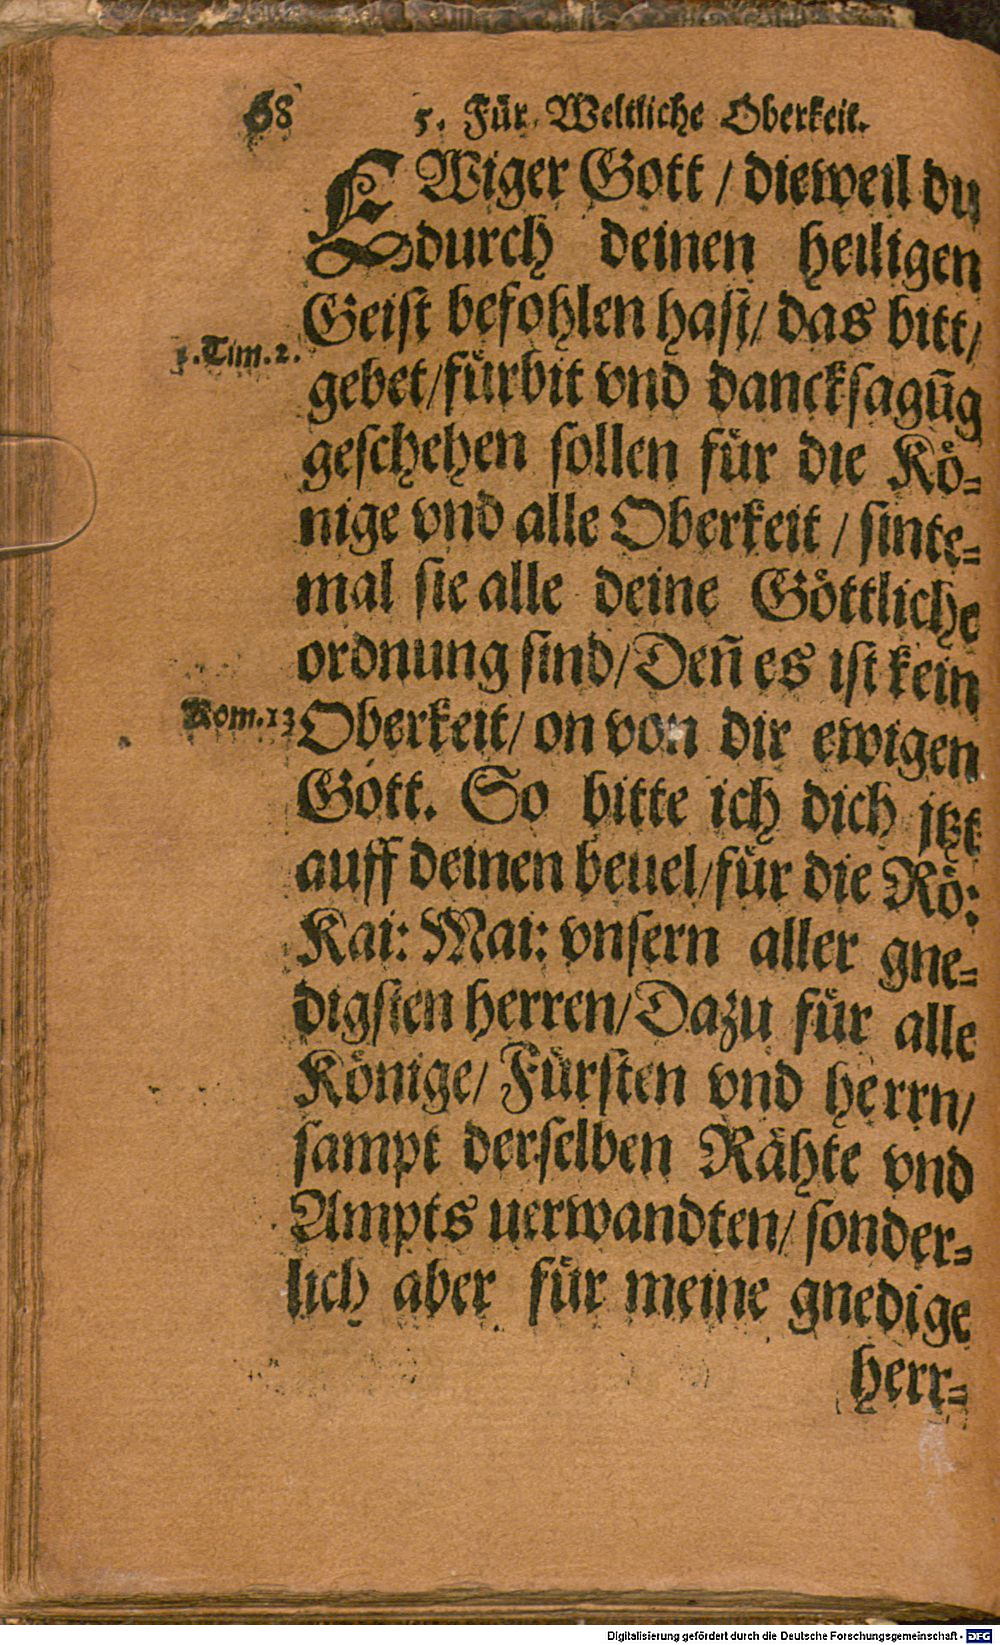 68 5. Fůr Weltliche Oberkeit.
EWiger Gott / dieweil du
durch deinen heiligen
Geist befohlen hast/ das bitt/
1.Tim.2.
gebet/fůrbit vnd dancksagūg
geschehen sollen fůr die Kö-
nige vnd alle Oberkeit / sinte-
mal sie alle deine Göttliche
ordnung sind/ Deñ es ist kein
Rom.13
Oberkeit/ on von dir ewigen
Gott. So bitte ich dich jtzt
auff deinen beuel/fůr die Rö:
Kai: Mai: vnsern aller gne-
digsten herren/ Dazu fůr alle
Könige/ Fůrsten vnd herrn/
sampt derselben Rähte vnd
Ampts uerwandten/ sonder-
lich aber fůr meine gnedige
herr-
Digitalisierung gefördert durch die Deutsche Forschungsgemeinschaft - DFG